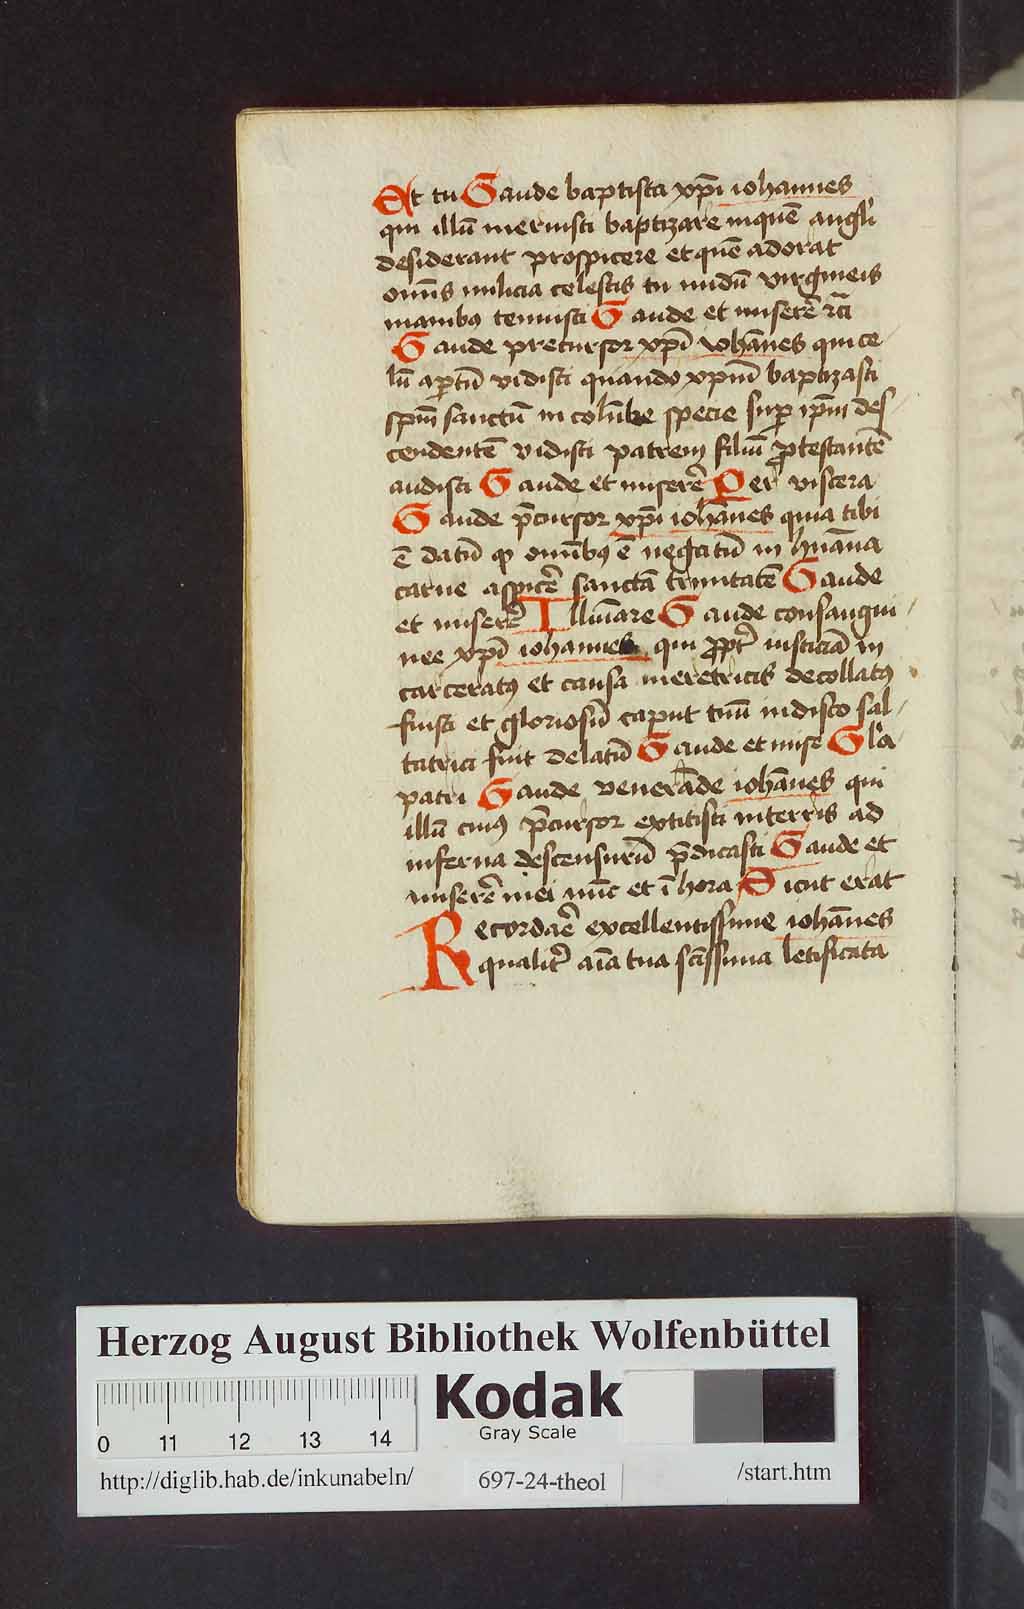 Et tu Gaude baptista xp̄i iohannes
qui illū meruisti baptizare inquē angli
desiderant prospicere et quē adorat
om̄s milicia celestis tu nudū virgineis
manibus tenuisti Gaude et miserē
Gaude precursor xp̄i iohānes qui ce
lū ap̄tū vidisti quando xp̄m baptizasti
sp̄m sanctū in colūbe specie sup̄ ip̄m des
cendentē vidisti patrem filiū ꝓtestantē
audisti Gaude et miserē Per viscera
Gaude p̄cursor xp̄i iohānes quia tibi
ē datū qꝫ om̄ibꝰ ē negatū in hūana
carne aspicē sanctā trinitatē Gaude
et miserē Illūiare Gaude consangui
nee xp̄i iohannes qui ꝓpt̄ iusticiā in
carceratꝰ et causa meretricis decollatꝰ
fuisti et gloriosū caput tuū in disco sal
tatrici fuit delatū Gaude et mise Gl'a
patri Gaude venerāde iohānes qui
illū cuiꝰ p̄cursor extitisti in terris ad
inferna descensurū p̄dicasti Gaude et
miserē mei nūc et ī hora Sicut erat
Recordaē excellentissime iohānes
qualit̄ aīa tua sc̄issima letificata
Herzog August Bibliothek Wolfenbüttel
Kodak
Gray Scale
0 11 12 13 14
http://diglib.hab.de/inkunabeln/ 697-24-theol /start.htm